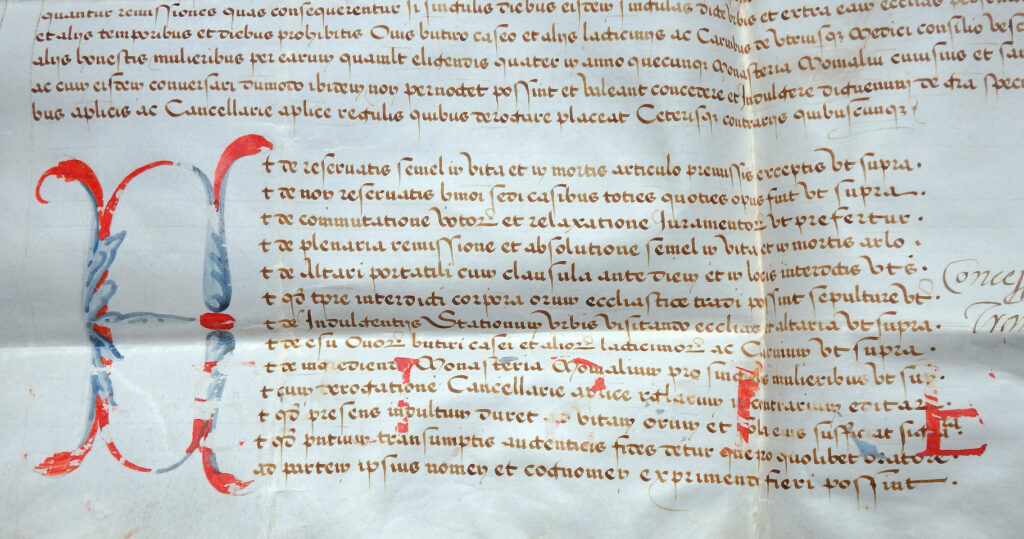 quantur remissiones quas consequerentur si singulis diebus eisdem singulas dicte Urbis et extra eam ecclias
et alijs temporibus et diebus prohibitis Ovis butiro caseo et alijs lacticinijs ac Carnibus de Utriusqȝ Medici consilio
alijs honestis mulieribus per earum quamlt eligendis quater in anno quecunqȝ Monasteria Monialiu cuiusuis et
ac cum eisdem conversari dumodo ibidem non pernoctet possint et valeant concedere et Indulgere dignemini de gra spec
bus aplicis ac Cancellarie aplice regulis quibus derogare placeat Ceterisqȝ contrarijs quibuscunqȝ
t de reservatis semel in vita et in mortis articulo premissis exceptis vt supra ·
t de non reservatis hmoi sedi casibus toties quoties opus fuit vt supra ·
t de commutatione votoꝝ et relaxatione Iuramentoꝝ vt prefertur ·
t de plenaria remissione et absolutione semel in vita et in mortis arlo ·
t de Altari portatili cum clausula ante diem et in locis interdictis vt s̄ ·
t qđ tpre interdicti corpora orum eccliastice tradi possint sepulture vt s̄
t de Indulgentijs Stationum Urbis visitando ecclias altaria vt supra ·
t de esu Ovoꝝ butiri casei et alioꝝ lacticinioꝝ ac Carnium vt supra ·
t de ingrediendi Monasteria Monialium pro mulieribus vt sup̄ ·
t cum derogatione Cancellarie aplice reglarum in contrarium editar
t qđ presens indultum duret ad vitam orum et sufficiat
t qđ pntium transumptis autenticis fides detur que pro quolibet oratore
ad partem ipsius nomen et cognomen exprimendi fieri possint ·